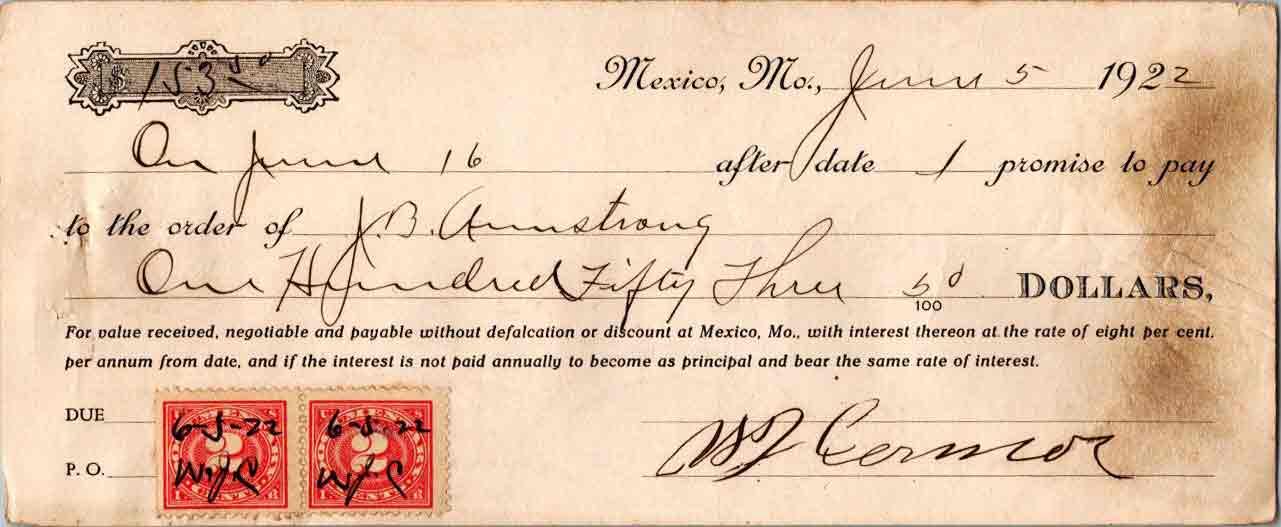 $ 153 50
Mexico, Mo., June 5 1922
On June 16 after date I promise to pay
to the order of J.B. Armstrong
One Hundred Fifty Three 50/100 DOLLARS,
For value received, negotiable and payable without defalcation or discount at Mexico, Mo., with interest thereon at the rate of eight per cent.
per annum from date, and if the interest is not paid annually to become as principal and bear the same rate of interest.
DUE
P. O.
6-5-22 6-5-22
2 2
W.J.C W.J.C
CENTS CENTS